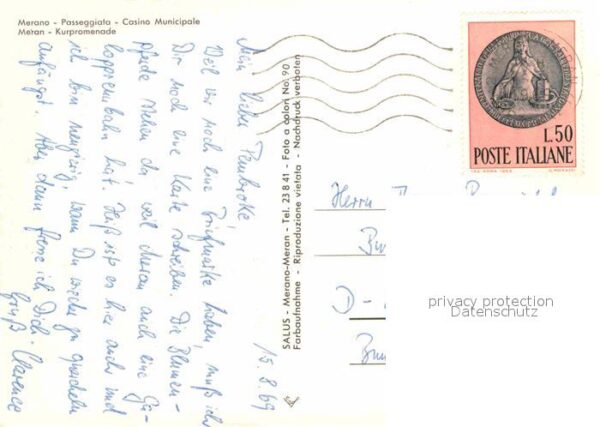 Merano - Passeggiata - Casino Municipale
Meran - Kurpromenade
15.8.69
Mein lieber Pembroke
Weil wir noch eine Briefmarke haben, muß ich
Dir noch eine Karte schreiben. Die Blumen-
pferde ziehen da weil Meran auch eine Ga-
lopprennbahn hat. Heiß ists es hier auch und
ich bin neugierig, wann Du wieder zu
anfängst. Aber dann fresse ich Dich.
Gruß Clarence
SALUS - Merano-Meran - Tel. 23 8 41 - Foto a colori No. 90
Farbaufnahme - Riproduzione vietata - Nachdruck verboten
L.50
POSTE ITALIANE
Herrn
D-
privacy protection
Datenschutz